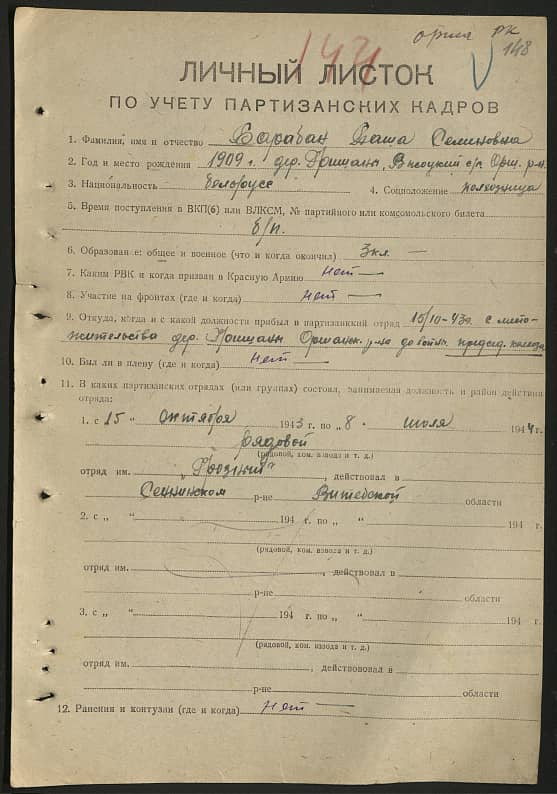 орша рк
148
ЛИЧНЫЙ ЛИСТОК
ПО УЧЕТУ ПАРТИЗАНСКИХ КАДРОВ
1. Фамилия, имя и отчество Барабан Паша Семиновна
2. Год и место рождения 1909 г. дер. Гришаны, с/с Орш. р-н.
3. Национальность белорусс 4. Соцположение колхозница
5. Время поступления в ВКП(б) или ВЛКСМ, № партийного или комсомольского билета
б/п.
6. Образование: общее и военное (что и когда окончил) 3 кл. —
7. Каким РВК и когда призван в Красную Армию нет —
8. Участие на фронтах (где и когда) нет —
9. Откуда, когда и с какой должности прибыл в партизанский отряд 15/10-43г. с место-
жительства дер. Гришаны Оршанск. р-на до войны председ. колхоза
10. Был ли в плену (где и когда) нет —
11. В каких партизанских отрядах (или группах) состоял, занимаемая должность и район действия
отряда:
1. с „15 “ октября 1943 г. по „8 “ июля 1944 г.
рядовой
(рядовой, ком. взвода и т. д.)
отряд им. „Грозный“, действовал в
Сеннинском р-не Витебской области
2. с „ “ 194 г. по „ “ 194 г.
(рядовой, ком. взвода и т. д.)
отряд им. , действовал в
р-не области
3. с „ “ 194 г. по „ “ 194 г.
(рядовой, ком. взвода и т. д.)
отряд им. , действовал в
р-не области
12. Ранения и контузии (где и когда) нет —